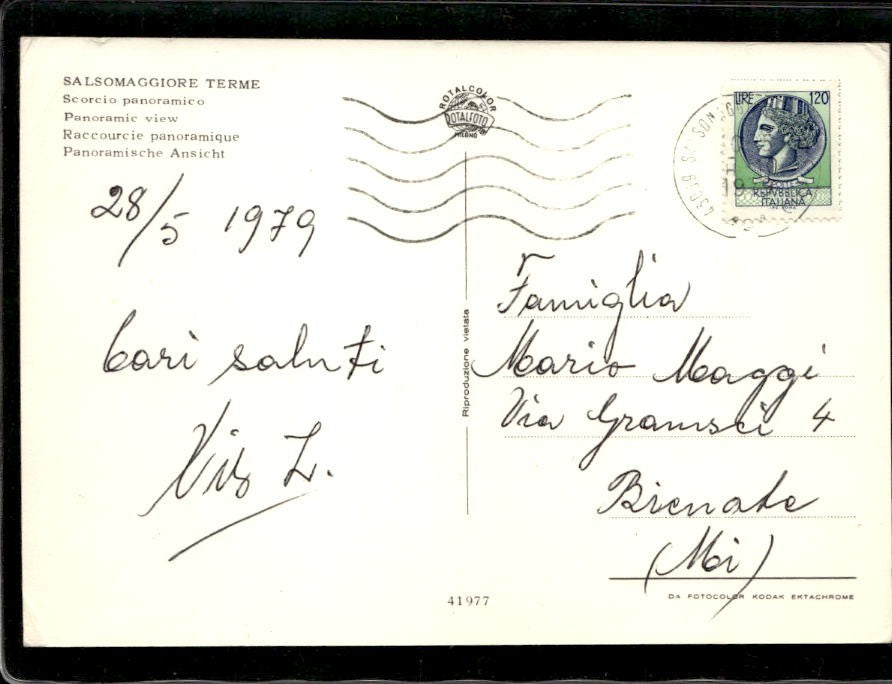 SALSOMAGGIORE TERME
Scorcio panoramico
Panoramic view
Raccourcie panoramique
Panoramische Ansicht
28/5 1979
Cari saluti
L.
ROTALCOLOR
ROTALFOTO
MILANO
Riproduzione vietata
41977
LIRE 120
POSTE
REPVBBLICA
ITALIANA
Famiglia
Mario Maggi
Via Gramsci 4
Bienate
(Mi)
DA FOTOCOLOR KODAK EKTACHROME